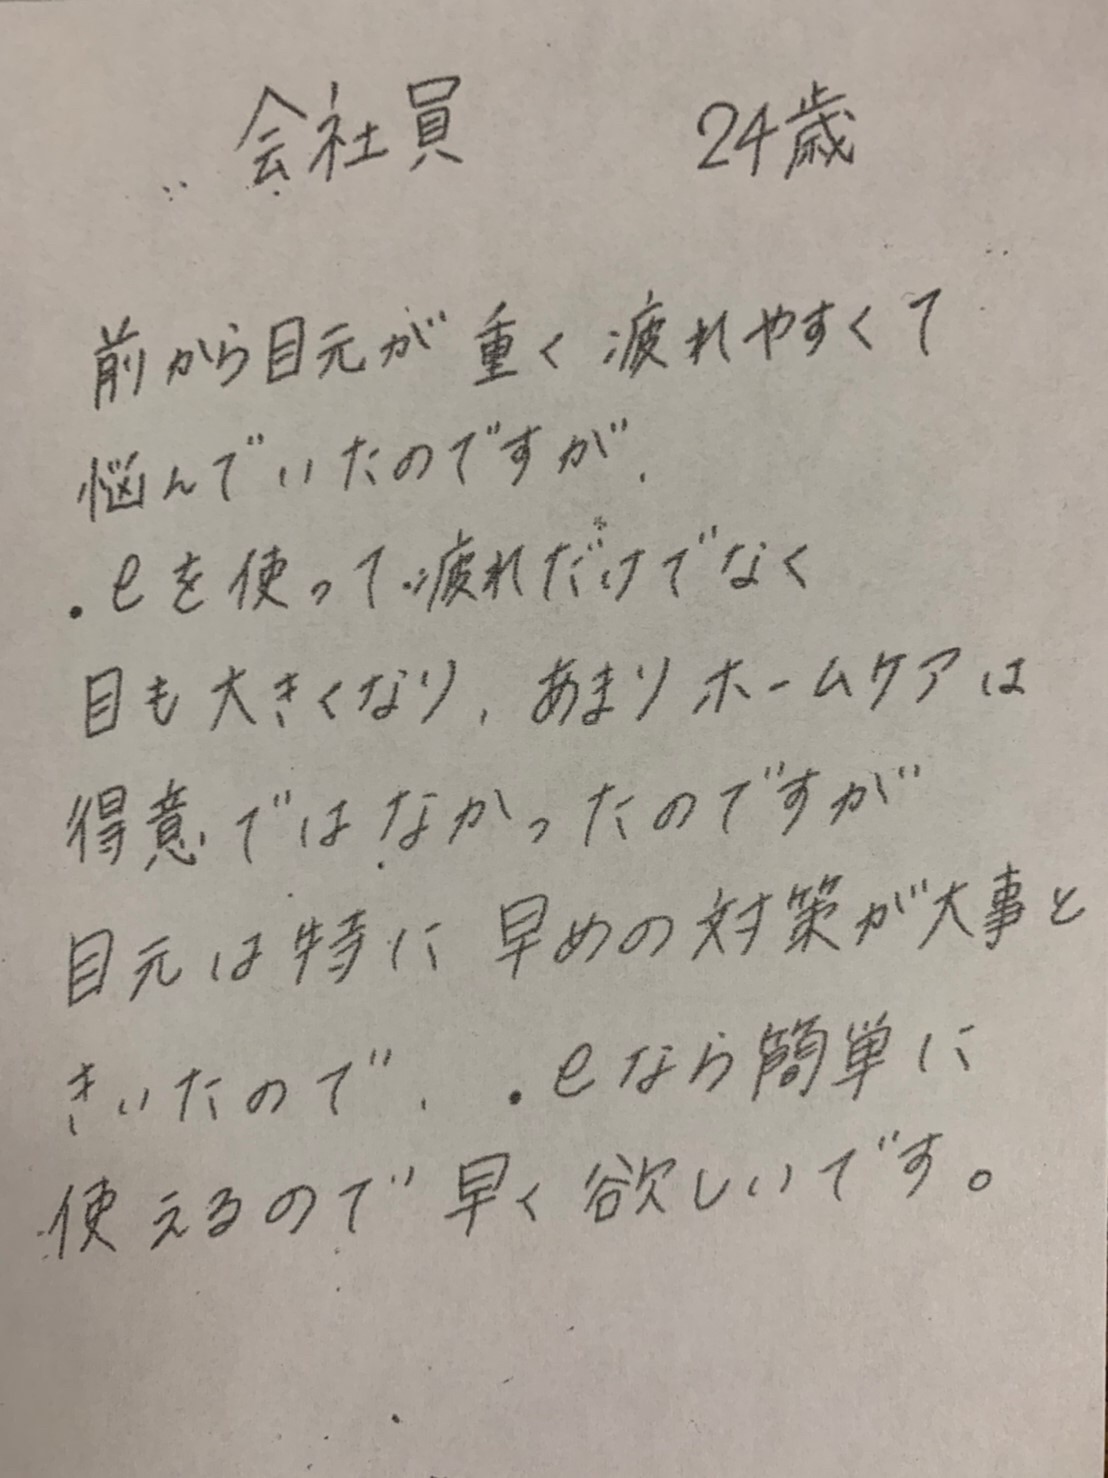 会社員 24歳
前から目元が重く疲れやすくて
悩んでいたのですが、
.eを使って疲れだけでなく
目も大きくなり、あまりホームケアは
得意ではなかったのですが
目元は特に早めの対策が大事と
きいたので、.eなら簡単に
使えるので早く欲しいです。